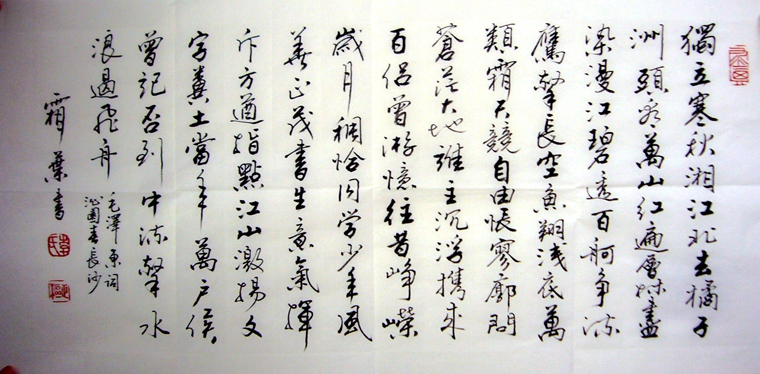 獨立寒秋湘江北去橘子
洲頭看萬山紅遍層林盡
染漫江碧透百舸争流
鷹擊長空魚翔淺底萬
類霜天競自由悵寥廓問
蒼茫大地誰主沉浮携來
百侣曾游憶往昔崢嶸
歲月稠恰同學少年風
華正茂書生意氣揮
斥方遒指點江山激揚文
字糞土當年萬户侯
曾記否到中流擊水
浪遏飛舟
毛澤東詞
沁園春長沙
霜葉書